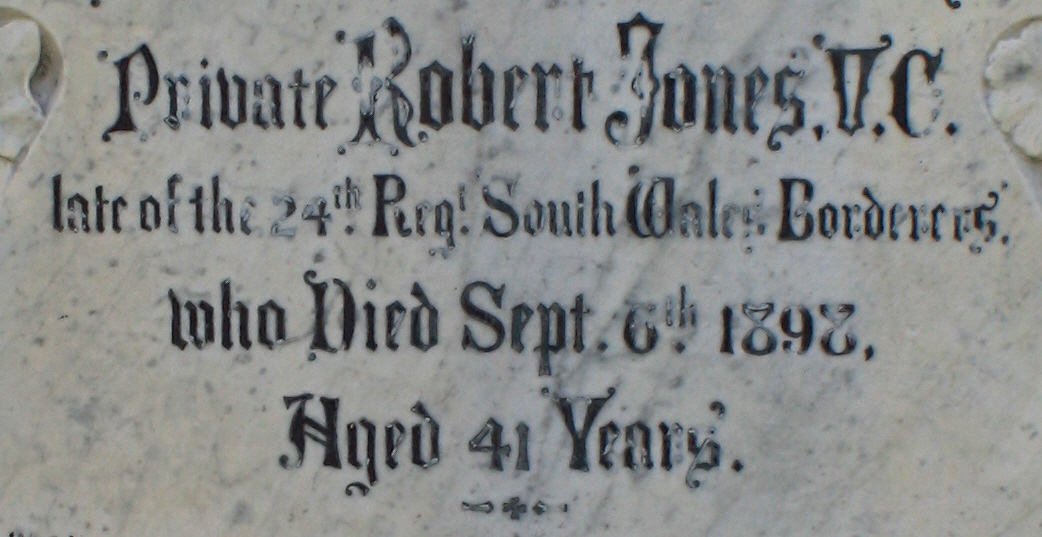 Private Robert Jones, V.C.
late of the 24th Regt. South Wales Borderers,
who Died Sept. 6th 1898,
Aged 41 Years.